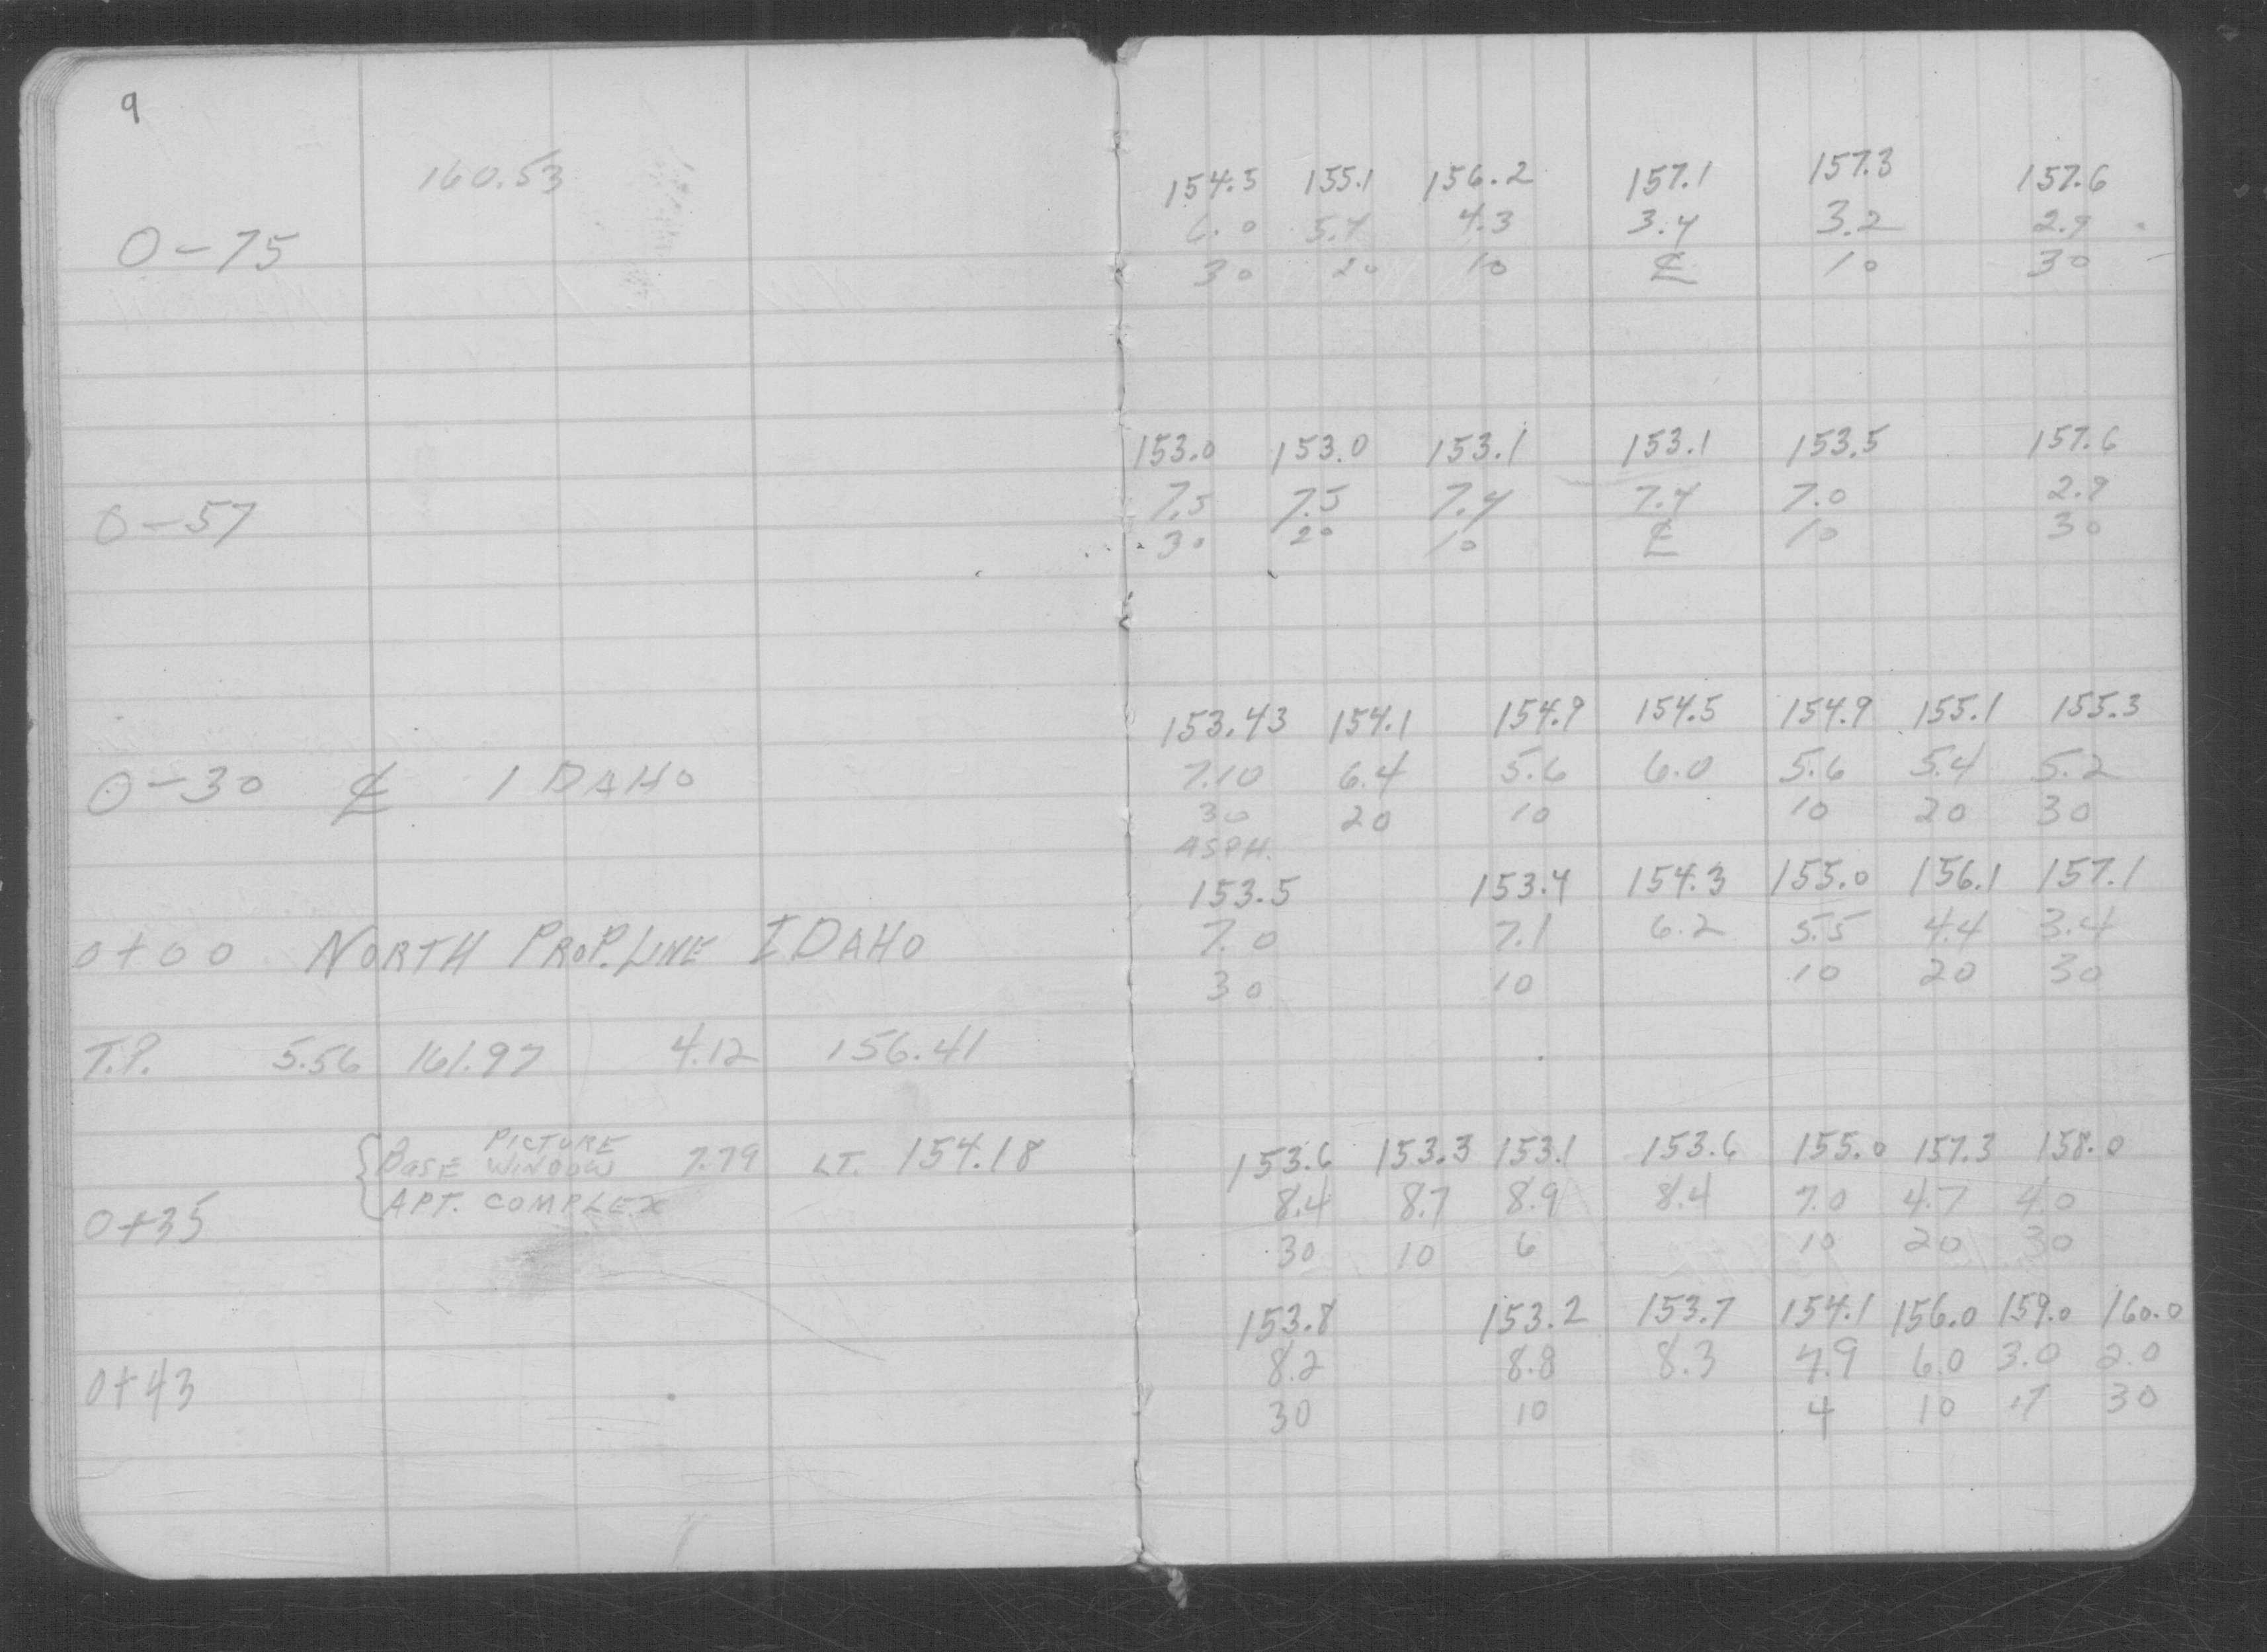 9
160.53
154.5 155.1 156.2 157.1 157.3 157.6
6.0 5.4 4.3 3.4 3.2 2.9
0-75 30 20 10 ℄ 10 30
153.0 153.0 153.1 153.1 153.5 157.6
7.5 7.5 7.4 7.4 7.0 2.9
0-57 30 20 10 ℄ 10 30
153.43 154.1 154.9 154.5 154.9 155.1 155.3
7.10 6.4 5.6 6.0 5.6 5.4 5.2
0-30 ℄ IDAHO 30 20 10 10 20 30
ASPH.
153.5 153.4 154.3 155.0 156.1 157.1
0+00 NORTH PROP. LINE IDAHO 7.0 7.1 6.2 5.5 4.4 3.4
30 10 10 20 30
T.P. 5.56 161.97 4.12 156.41
{BASE PICTURE WINDOW 7.79 LT. 154.18 153.6 153.3 153.1 153.6 155.0 157.3 158.0
APT. COMPLEX 8.4 8.7 8.9 8.4 7.0 4.7 4.0
0+35 30 10 6 10 20 30
153.8 153.2 153.7 154.1 156.0 159.0 160.0
8.2 8.8 8.3 7.9 6.0 3.0 2.0
0+43 30 10 4 10 17 30